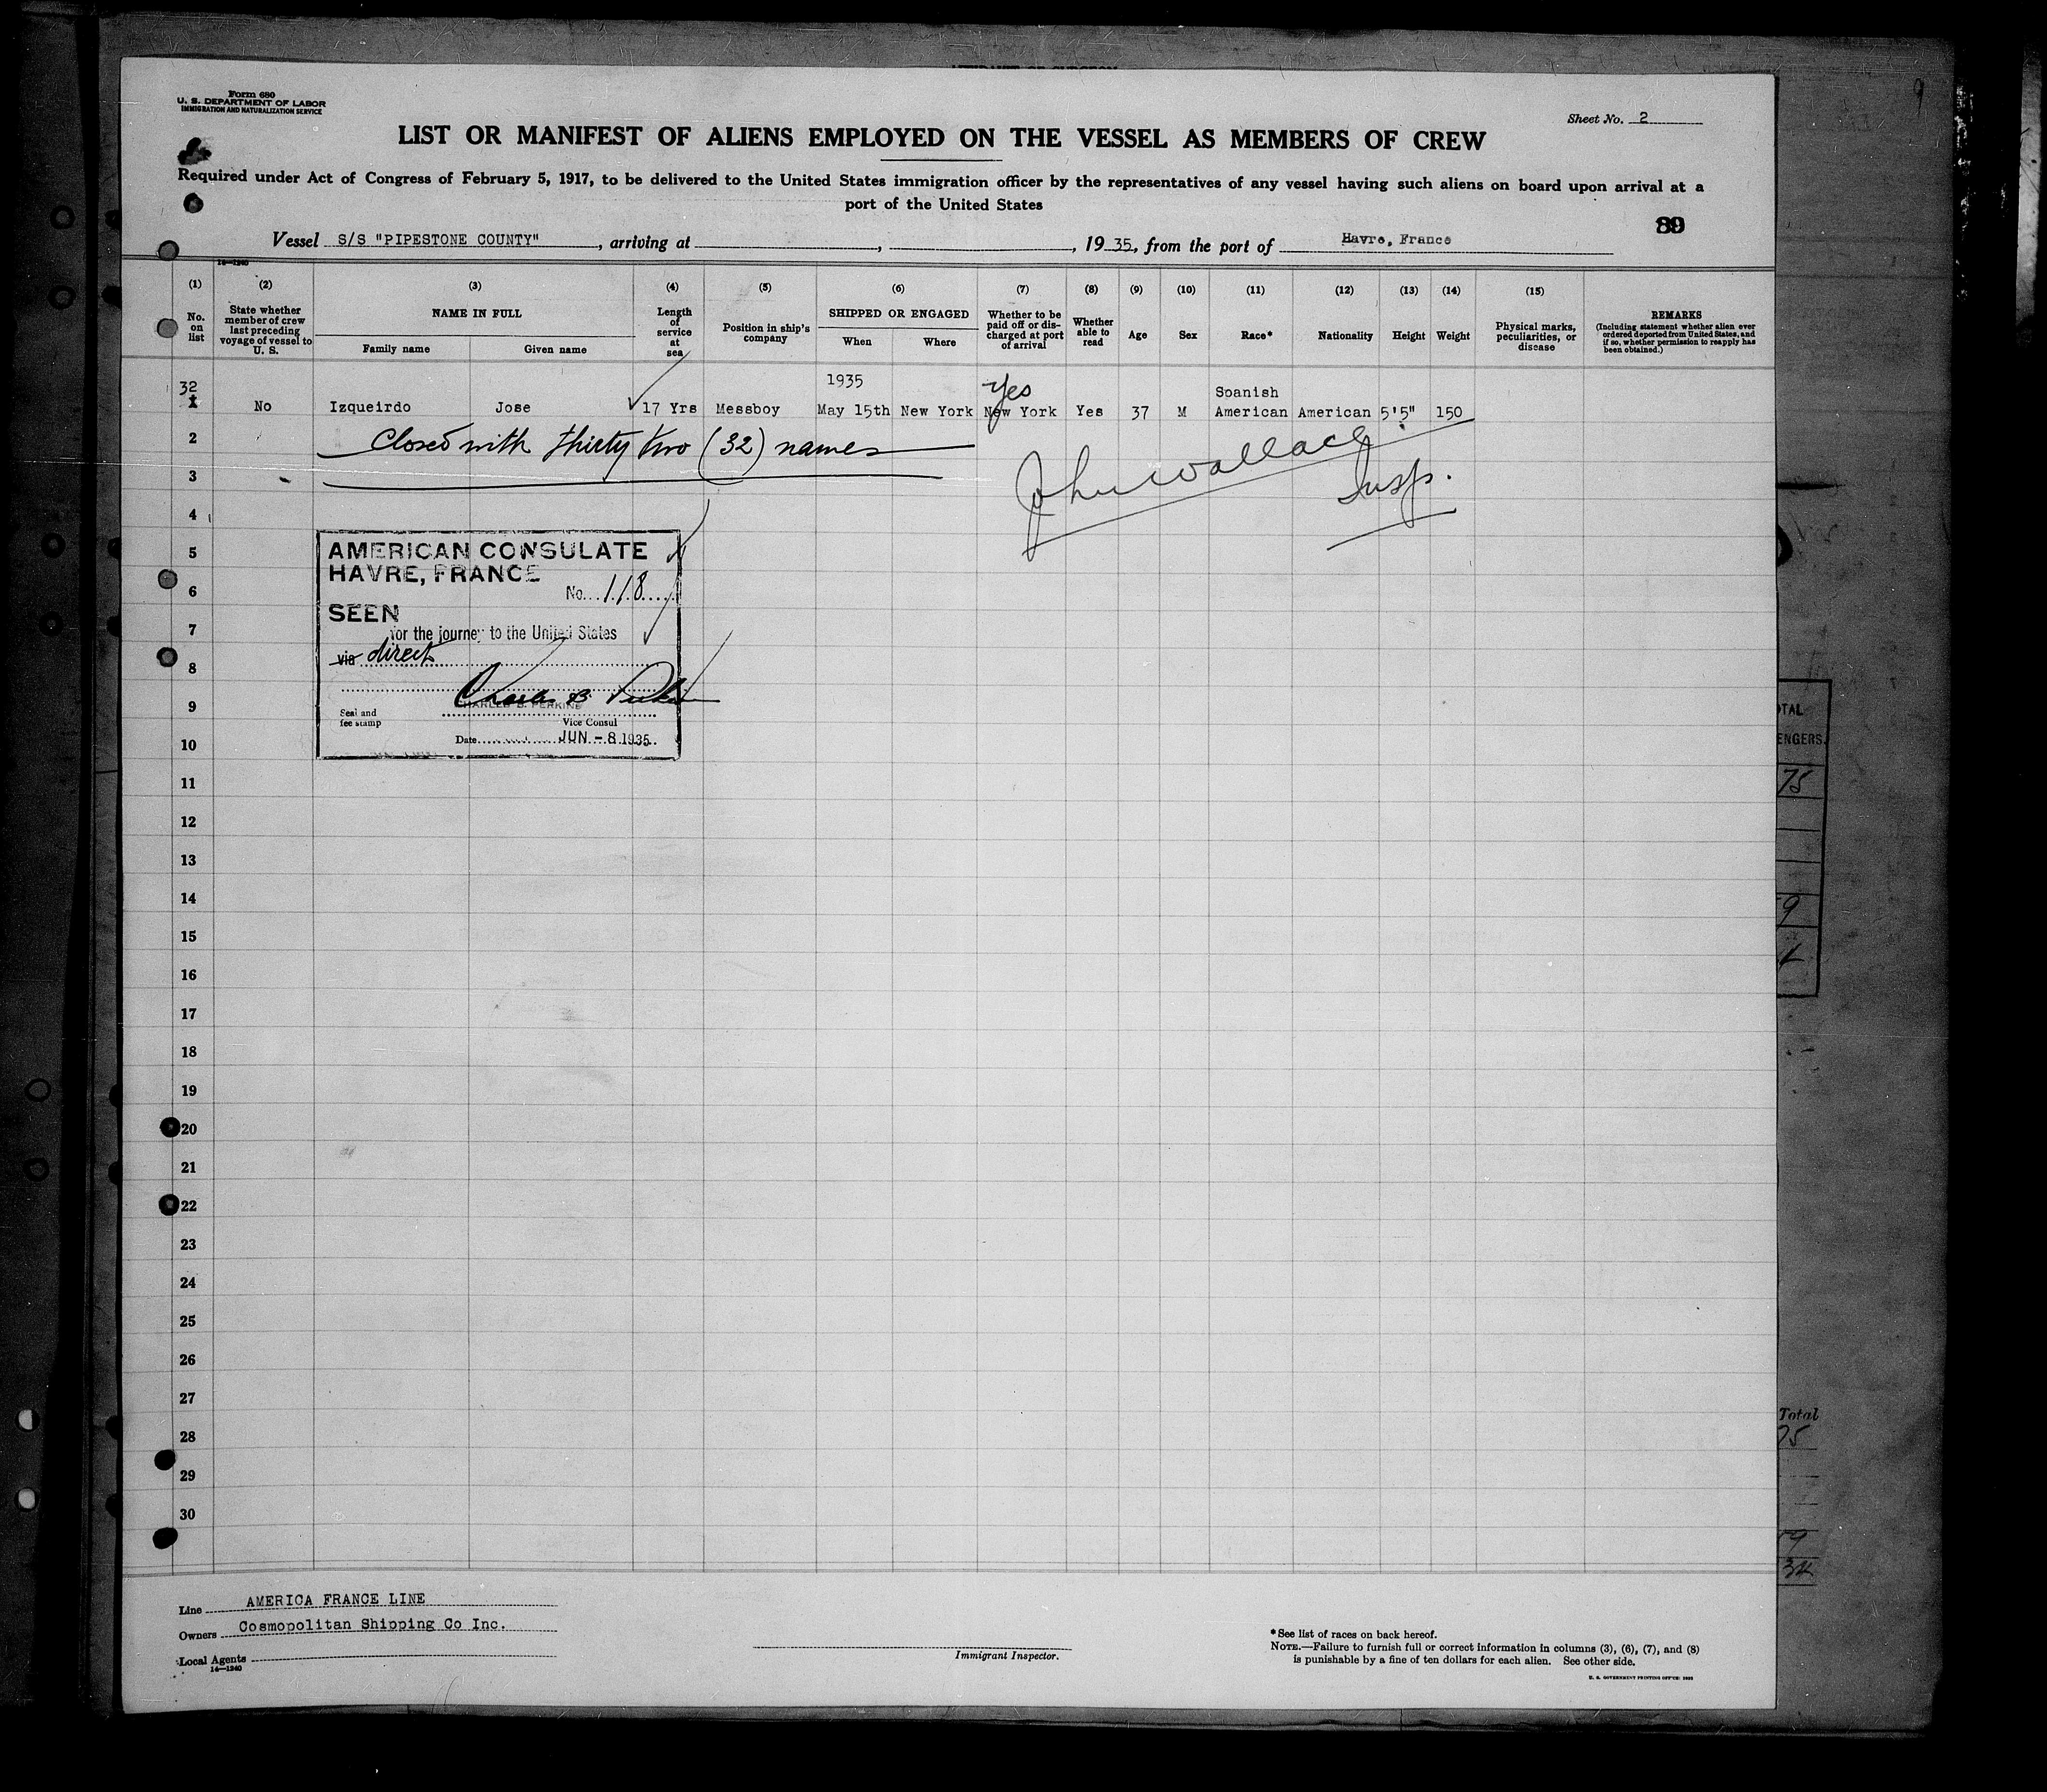 Form 680
U. S. DEPARTMENT OF LABOR
IMMIGRATION AND NATURALIZATION SERVICE
Sheet No. 2
LIST OR MANIFEST OF ALIENS EMPLOYED ON THE VESSEL AS MEMBERS OF CREW
Required under Act of Congress of February 5, 1917, to be delivered to the United States immigration officer by the representatives of any vessel having such aliens on board upon arrival at a
port of the United States
89
Vessel S/S "PIPESTONE COUNTY", arriving at , , 1935, from the port of Havre, France
14—1240
(1) (2) (3) (4) (5) (6) (7) (8) (9) (10) (11) (12) (13) (14) (15)
No. on list
State whether member of crew last preceding voyage of vessel to U. S.
NAME IN FULL
Family name
Given name
Length of service at sea
Position in ship's company
SHIPPED OR ENGAGED
When
Where
Whether to be paid off or discharged at port of arrival
Whether able to read
Age
Sex
Race*
Nationality
Height
Weight
Physical marks, peculiarities, or disease
REMARKS
(Including statement whether alien ever ordered deported from United States, and if so, whether permission to reapply has been obtained.)
32 1935 Yes Spanish
1 No Izqueirdo Jose 17 Yrs Messboy May 15th New York New York Yes 37 M American American 5'5" 150
2 Closed with thirty two (32) names
John Wallace
Insp.
3
4
5
AMERICAN CONSULATE
HAVRE, FRANCE
6
No. 118
SEEN
7
for the journey to the United States
via direct
8
Charles B. Perkins
CHARLES B. PERKINS
9
Seal and
fee stamp
Vice Consul
10
Date JUN - 8 1935
11
12
13
14
15
16
17
18
19
20
21
22
23
24
25
26
27
28
29
30
TAL
ENGERS.
75
9
Total
75
Line AMERICA FRANCE LINE
Owners Cosmopolitan Shipping Co Inc.
Local Agents
14—1240
Immigrant Inspector.
*See list of races on back hereof.
NOTE.—Failure to furnish full or correct information in columns (3), (6), (7), and (8)
is punishable by a fine of ten dollars for each alien. See other side.